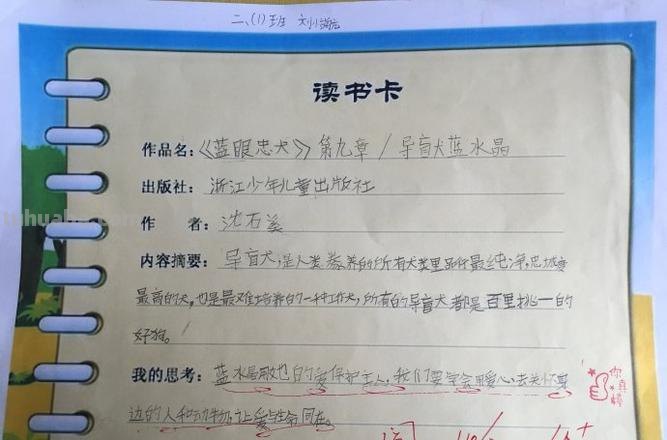 二、(1)班 刘
读书卡
作品名:《蓝眼忠犬》第九章/导盲犬蓝水晶
出版社:浙江少年儿童出版社
作 者:沈石溪
内容摘要:导盲犬,是人类豢养的所有犬类里品行最纯净,忠诚度
最高的犬,也是最难培养的一种工作犬,所有的导盲犬都是百里挑一的
好狗。
我的思考:蓝水晶用她的爱保护主人,我们要学会用爱心去关怀身
边的人和动物让爱与生命同在。
你真棒